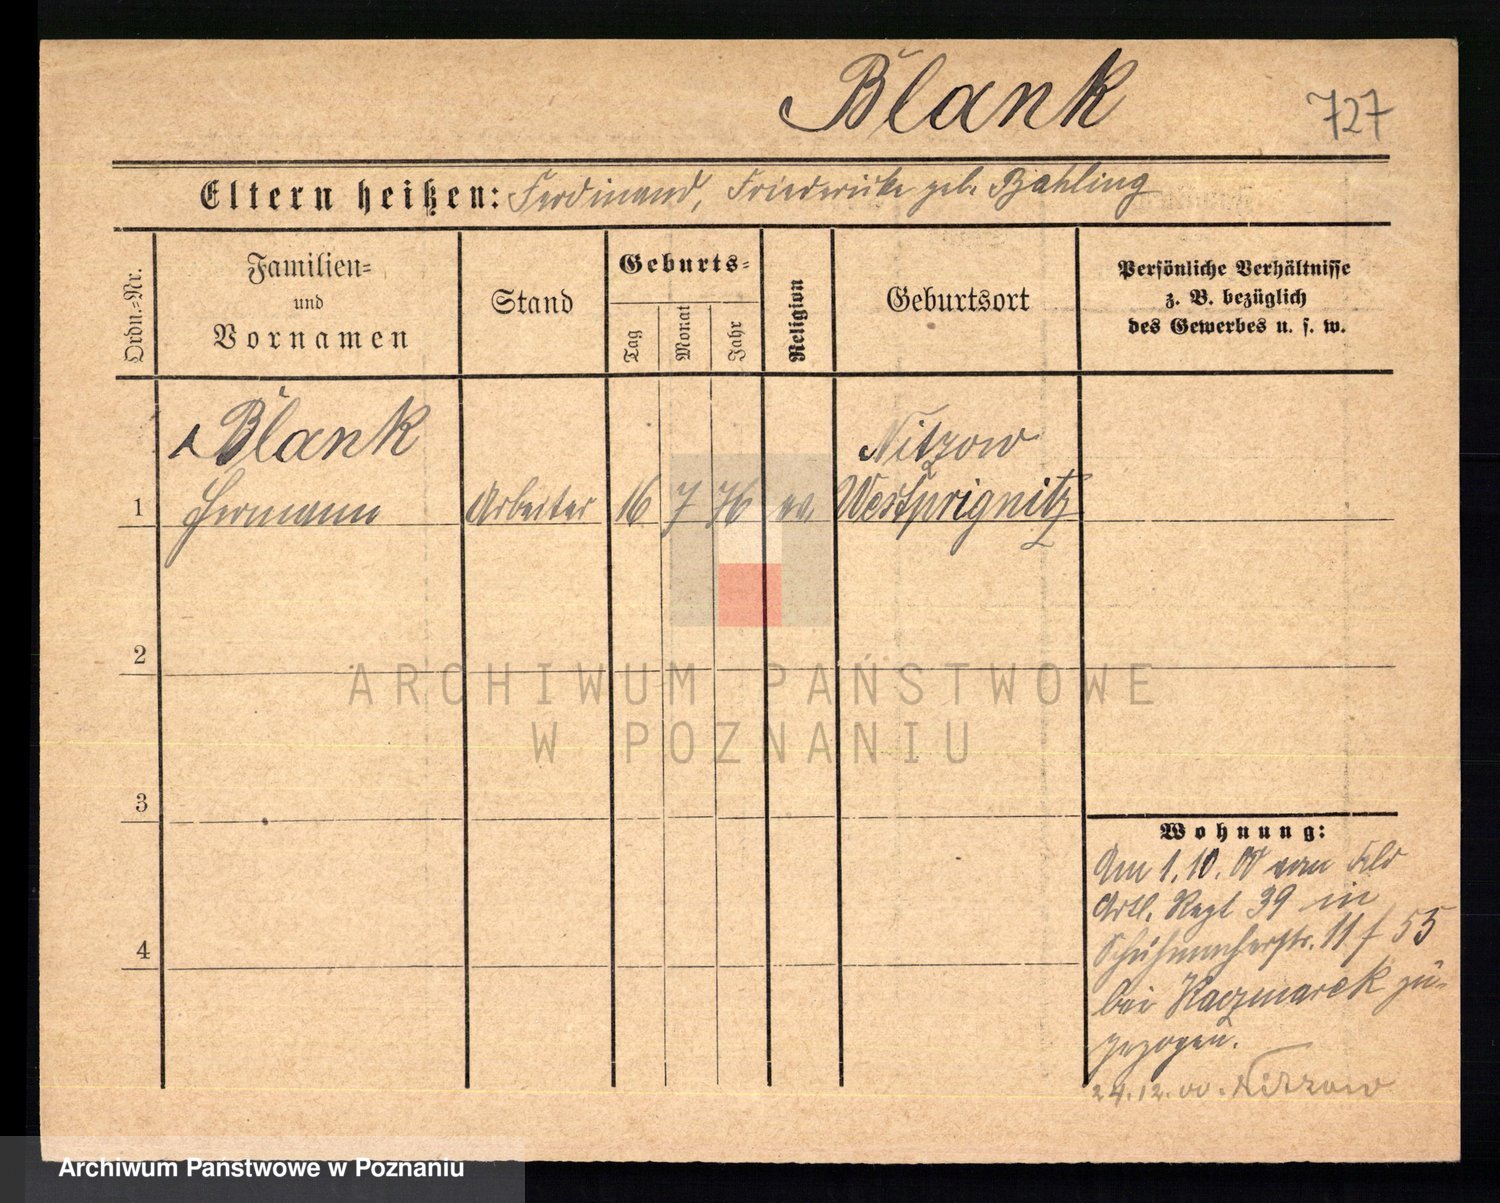 Blank
727
Eltern heißen: Ferdinand, Friederike geb. Bahling
Ordn.=Nr.
Familien=
und
Vornamen
Stand
Geburts=
Tag
Monat
Jahr
Religion
Geburtsort
Persönliche Verhältnisse
z. B. bezüglich
des Gewerbes u. s. w.
Blank
1 Hermann
Arbeiter
16
7
76
ev.
Nitzow
Westprignitz
2
3
4
Wohnung:
Am 1.10.00 vom Feld
Artl. Regt 39 in
Schuhmacherstr. 11 f 55
bei Kaczmarek zu-
gezogen.
24.12.00. Nitzow
ARCHIWUM PAŃSTWOWE
W POZNANIU
Archiwum Państwowe w Poznaniu